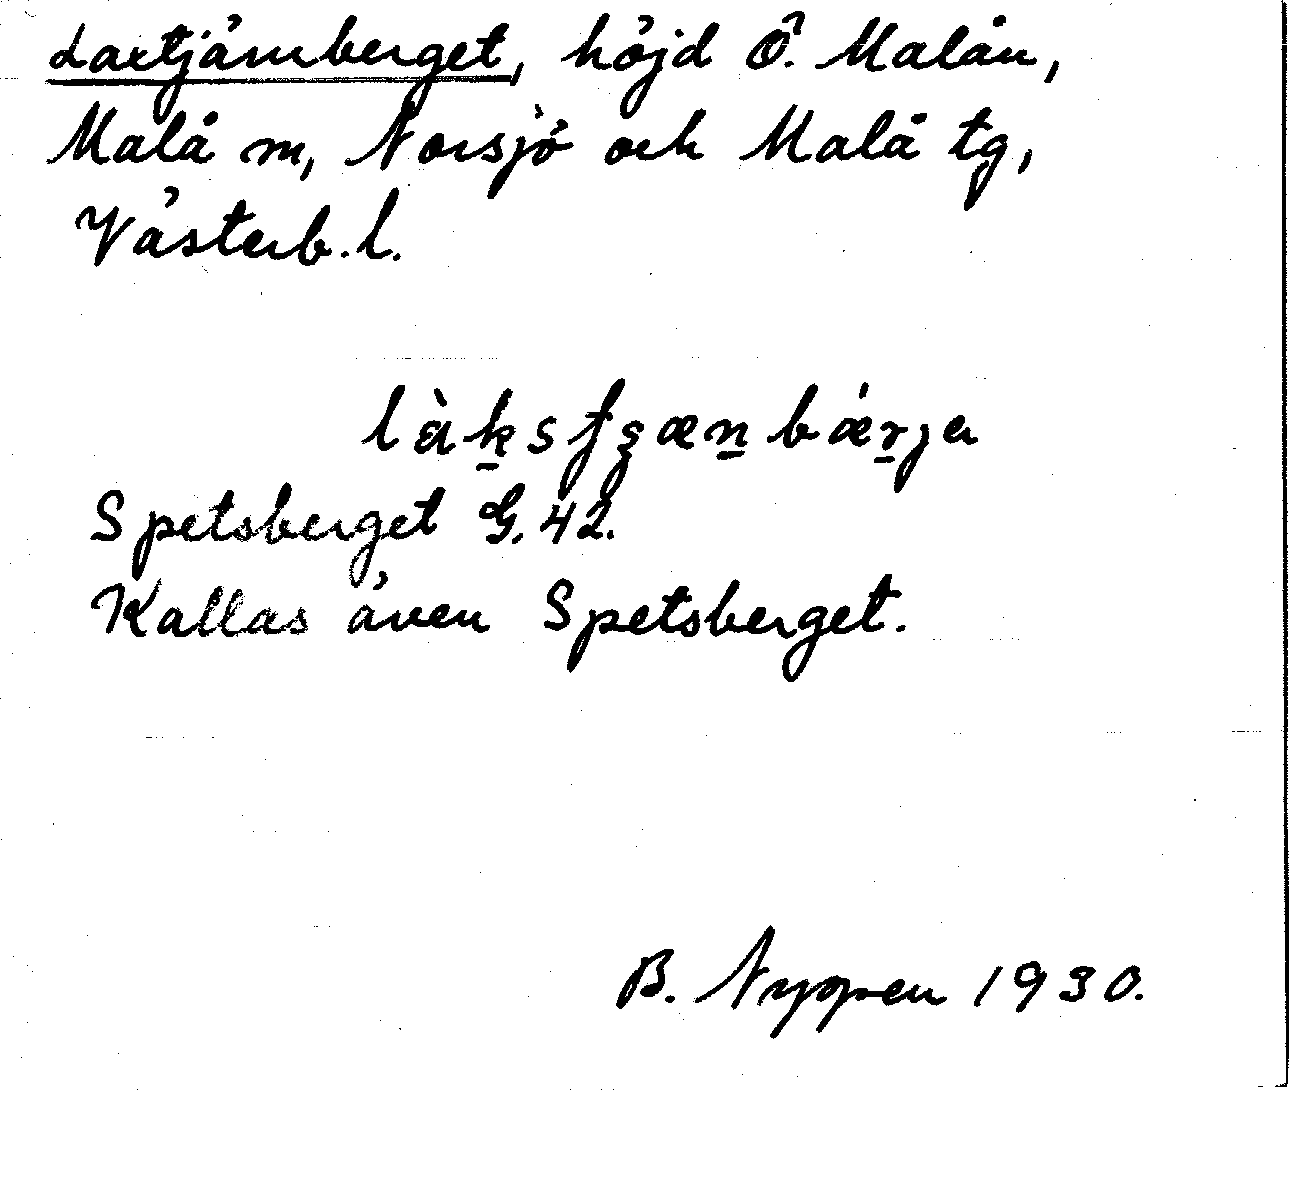 Laxtjärnberget, höjd Ö. Malån,
Malå sn, Norsjö och Malå tg,
Västerb.l.
Spetsberget G. 42.
Kallas även Spetsberget.
B. Nyppen 1930.